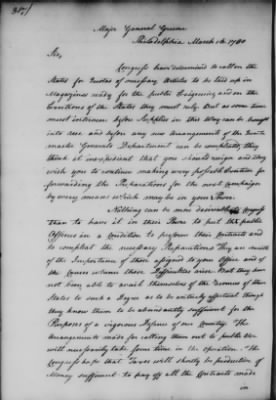 357
Major General Greene
Philadelphia March 1780
Sir,
Congress have determined to call on the
States for Quotas of necessary Articles to be laid up in
Magazines ready for the public Exigencies and on the
Exertions of the States they must rely. But as some time
must intervene before Supplies in this Way can be brought
into use and before any new Arrangement of the Quarter
master Generals Department can be compleated, they
think it inexpedient that you should resign and they
wish you to continue making every possible Exertion for
forwarding the Preparations for the next Campaign
by every means which may be in your Power.
Nothing can be more desirable to Congress
than to have it in their Power to put the public
Officers in a Condition to perform their Contracts and
to compleat the necessary Preparations They are aware
of the Importance of those assigned to your Office and of
the Causes whence those Difficulties arise. But they have
not been able to avail themselves of the Resources of these
States to such a Degree as to be entirely effectual though
they know them to be abundantly sufficient for the
Purposes of a vigorous Defence of our Country. The
Arrangements made for calling them out to public Use
will necessarily take some time in the operation. The
Congress hope that Taxes will shortly be productive of
Money sufficient to pay off all the Contracts made
in